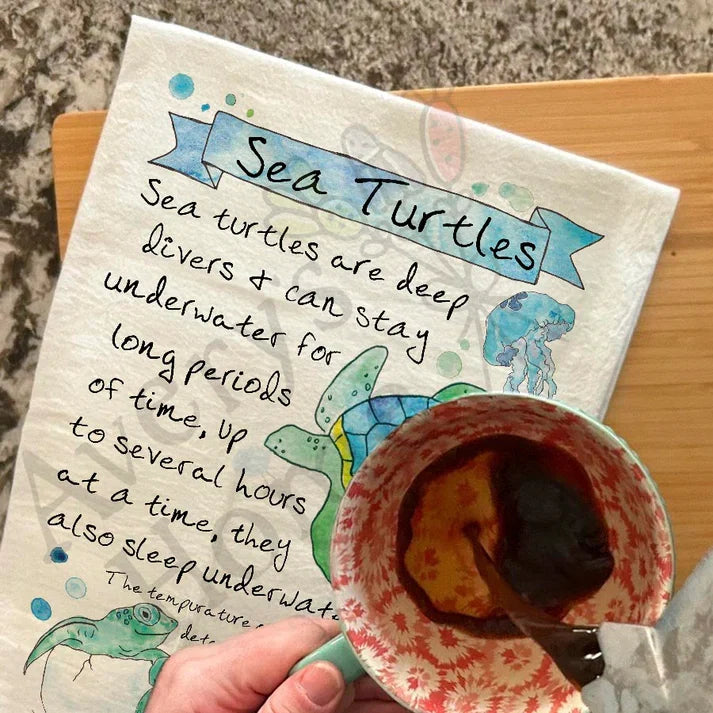 Sea Turtles
Sea turtles are deep
divers & can stay
underwater for
long periods
of time, up
to several hours
at a time, they
also sleep underwate
The tempurature
Avery's
Home